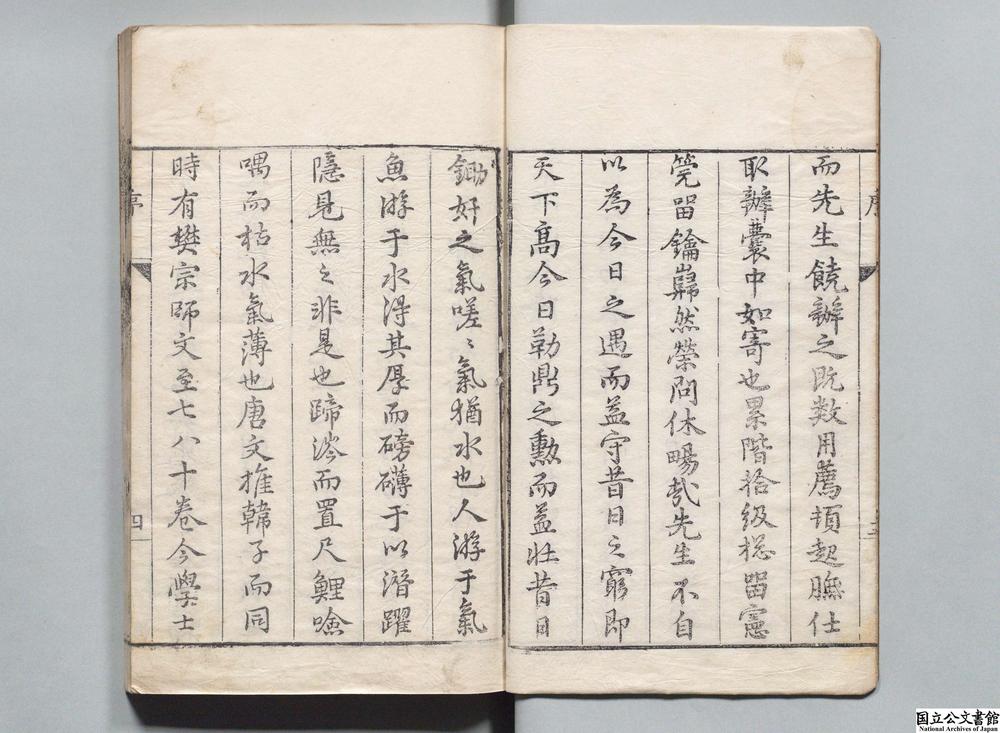 序
而先生饒辦之既數用薦頓起膴仕
取辦囊中如寄也累階拾級柂畱憲
筦畱鑰巋然榮問休暢哉先生不自
以為今日之遇而益守昔日之窮即
天下髙今日勒鼎之勲而益壯昔日
鋤奸之氣嗟〻氣猶水也人游于氣
魚游于水淂其厚而磅礴于以潛躍
隠見無之非是也蹄涔而置尺鯉噞
喁而枯水氣薄也唐文推韓子而同
時有樊宗師文至七八十卷今學士
序
四
国立公文書館
National Archives of Japan